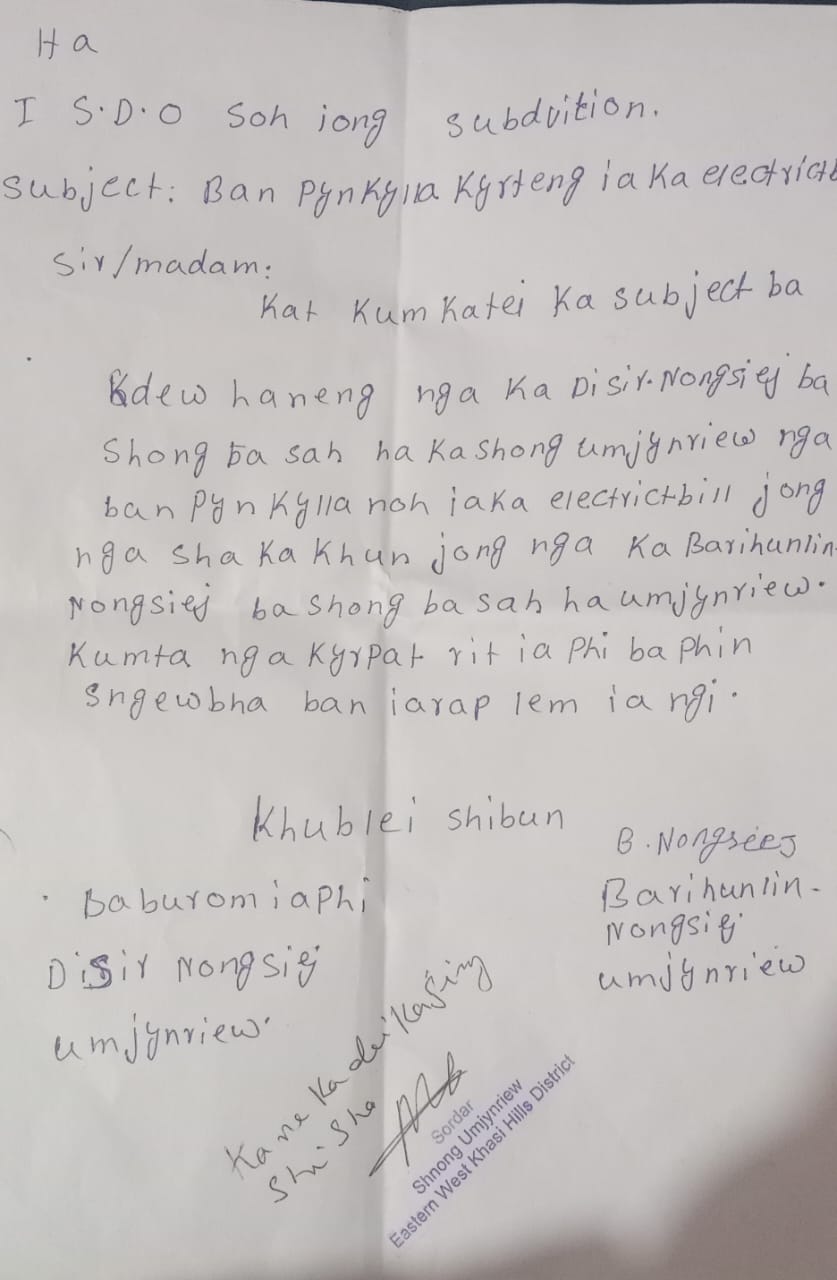 Ha
I S.D.O Soh iong subdvition.
Subject: Ban PynKylla Kyrteng ia Ka electrict
Sir/madam:
Kat Kum Katei Ka subject ba
Kdew haneng nga Ka Disir. Nongsiej ba
Shong ba sah ha Ka Shong umjynriew nga
ban Pyn Kylla noh iaka electrictbill jong
nga Sha Ka Khun jong nga Ka Barihunlin-
Nongsiej ba Shong ba sah ha umjynriew.
Kumta nga Kyrpat rit ia Phi ba Phin
Sngewbha ban iarap lem ia ngi.
Khublei shibun
Baburom iaphi
Disir Nongsiej
umjynriew.
B. Nongsiej
Barihunlin-
Nongsiej
umjynriew
Kane Ka dei Ka
Shi Sha
Sordar
Shnong Umjynriew
Eastern West Khasi Hills District